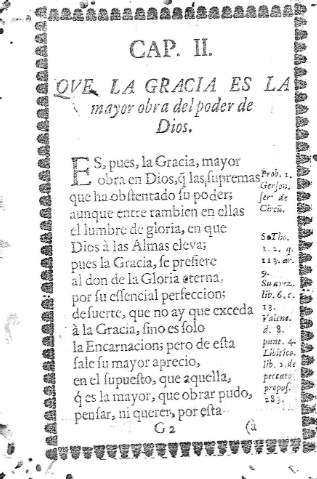 CAP. II.
QVE LA GRACIA ES LA
mayor obra del poder de
Dios.
ES, pues, la Gracia, mayor
obra en Dios, q̃ las supremas
que ha obstentado su poder;
aunque entre tambien en ellas
el lumbre de gloria, en que
Dios à las Almas eleva;
pues la Gracia, se prefiere
al don de la Gloria eterna,
por su essencial perfeccion;
de suerte, que no ay que exceda
à la Gracia, sino es solo
la Encarnacion; pero de esta
sale su mayor aprecio,
en el supuesto, que aquella,
q̃ es la mayor, que obrar pudo,
pensar, ni querer, por esta
G 2 (à
Prob. 1.
Gerson.
ser de
S. Tho.
1. 2. q.
113. ar.
9.
Suarez.
lib. 6. c.
13.
Valenc.
d. 8.
punt. 4.
lib. 2. de
peccato
propos.
283.